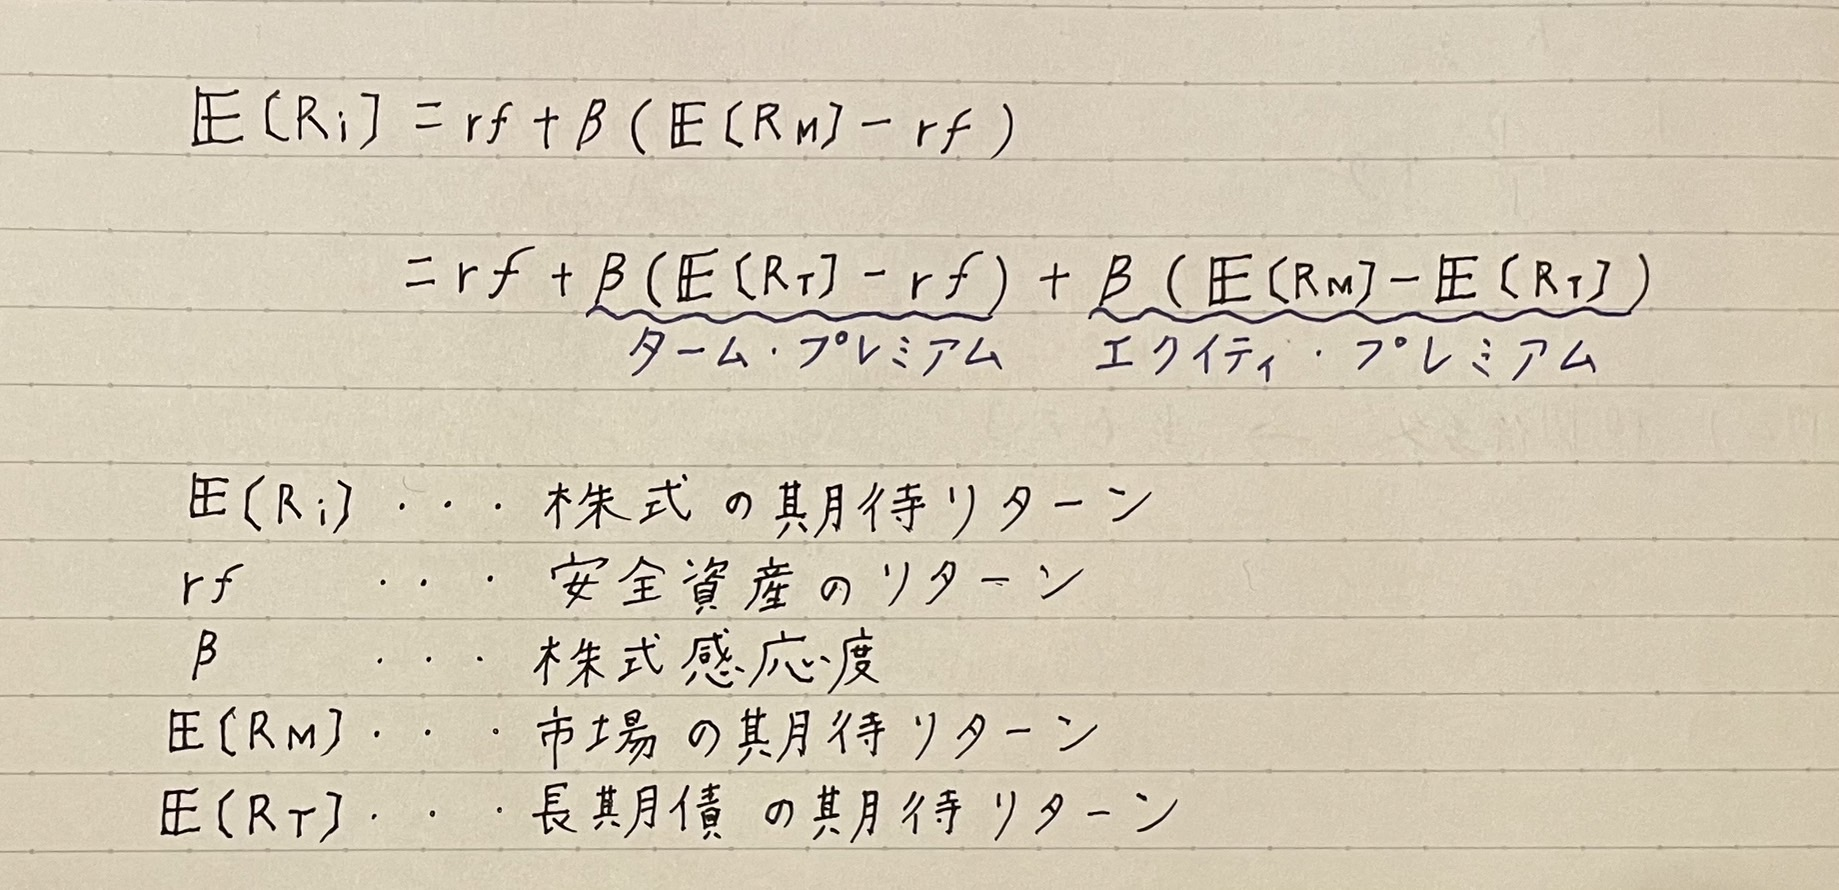 𝔼[Ri] = rf + β(𝔼[RM] - rf)
= rf + β(𝔼[RT] - rf) + β(𝔼[RM] - 𝔼[RT])
ターム・プレミアム エクイティ・プレミアム
𝔼[Ri] ・・・ 株式の期待リターン
rf ・・・ 安全資産のリターン
β ・・・ 株式感応度
𝔼[RM] ・・・ 市場の期待リターン
𝔼[RT] ・・・ 長期債の期待リターン